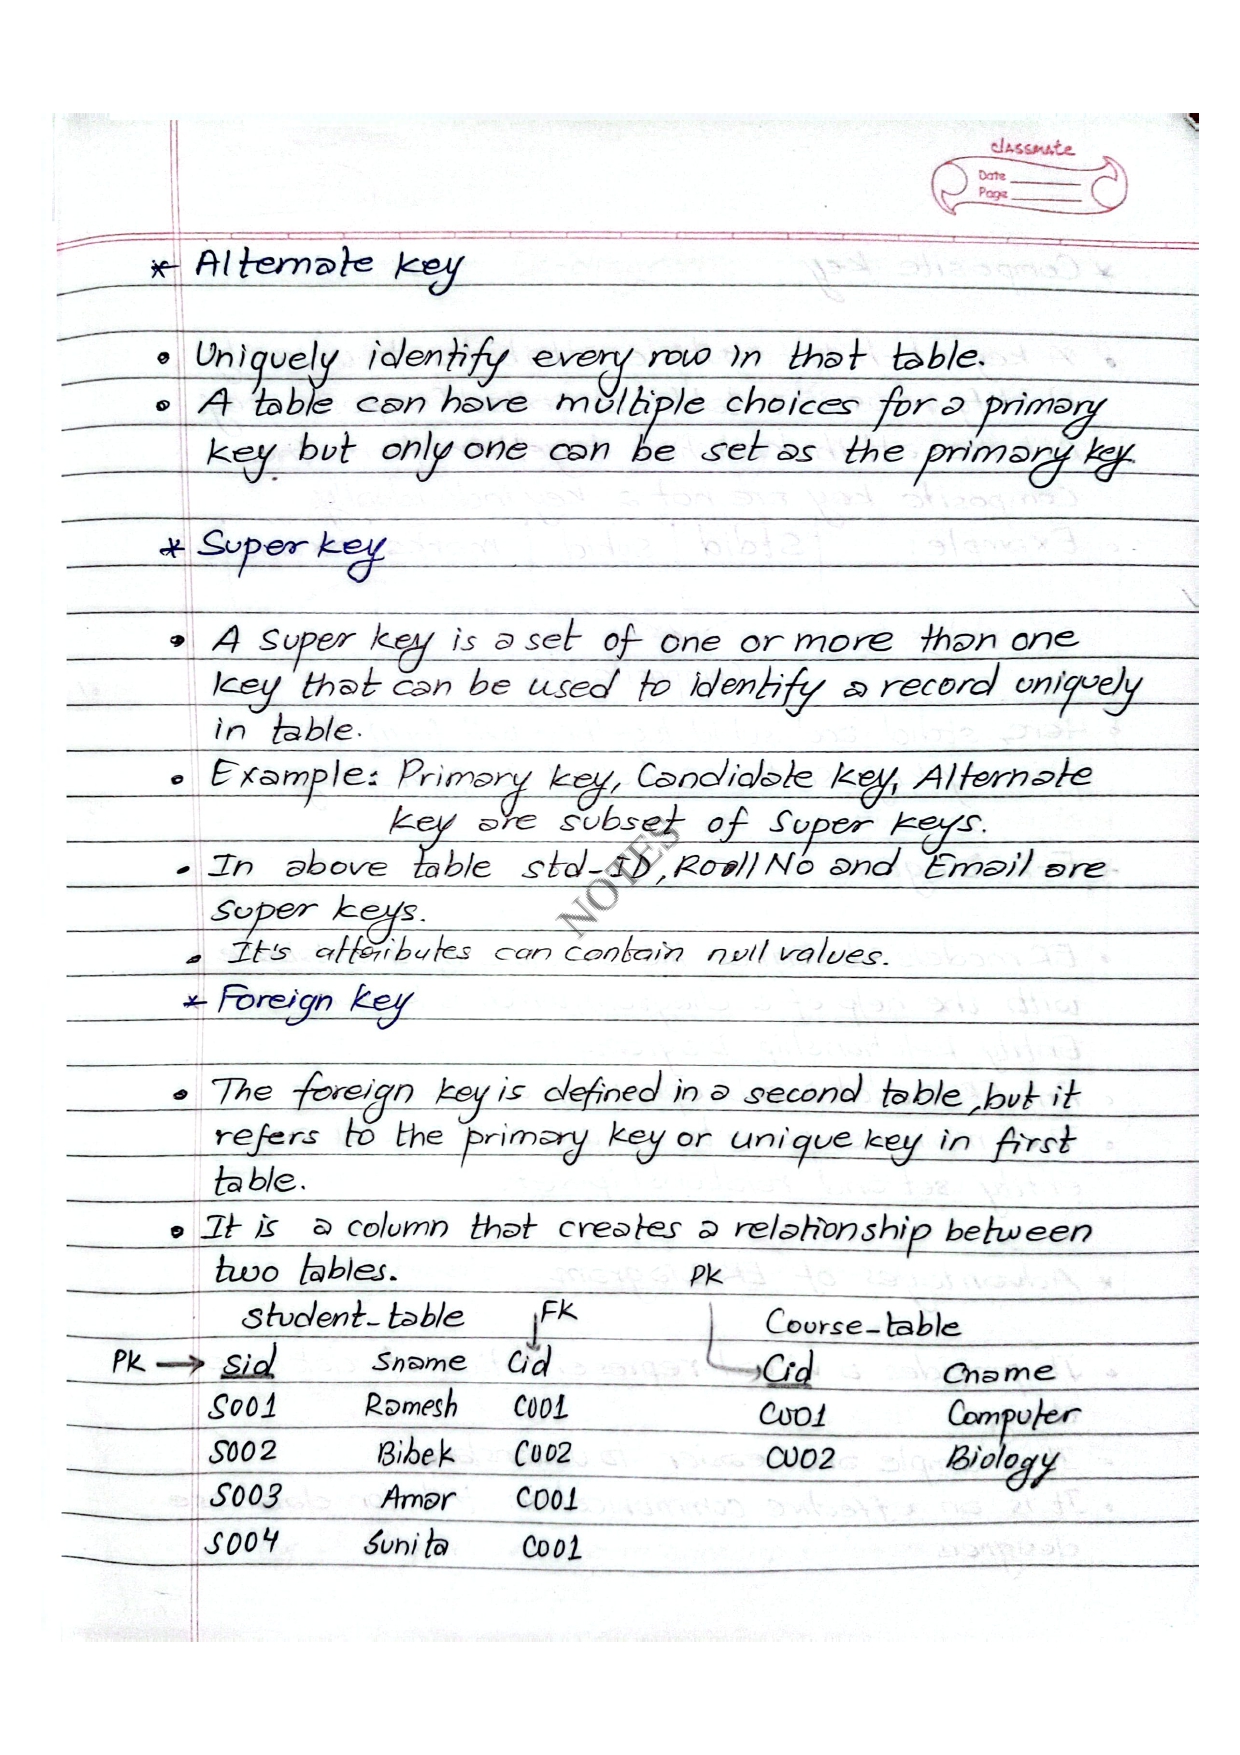 classmate
Date
Page
* Alternate key
• Uniquely identify every row in that table.
• A table can have multiple choices for a primary
key but only one can be set as the primary key.
* Super key
• A super key is a set of one or more than one
key that can be used to identify a record uniquely
in table.
• Example: Primary key, Candidate key, Alternate
key are subset of super keys.
NOTES
• In above table std-ID, Roll No and Email are
super keys.
• It's attributes can contain null values.
* Foreign key
• The foreign key is defined in a second table, but it
refers to the primary key or unique key in first
table.
• It is a column that creates a relationship between
two tables.
PK
student-table FK Course-table
PK → sid Sname Cid Cid Cname
S001 Ramesh C001 C001 Computer
S002 Bibek C002 C002 Biology
S003 Amar C001
S004 Sunita C001